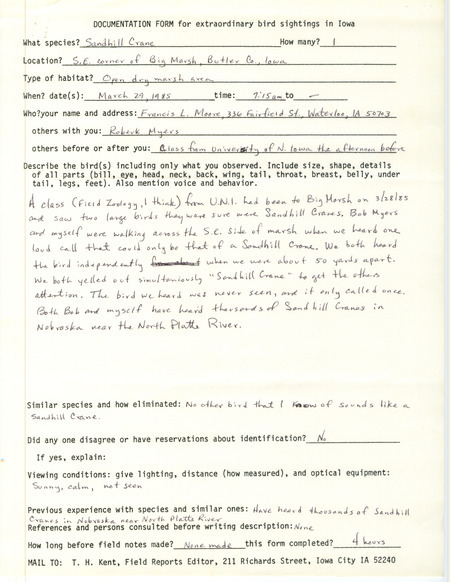 DOCUMENTATION FORM for extraordinary bird sightings in Iowa
What species? Sandhill Crane How many? 1
Location? S.E. corner of Big Marsh, Butler Co., Iowa
Type of habitat? Open dry marsh area
When? date(s): March 29, 1985 time: 7:15am to —
Who?your name and address: Francis L. Moore, 336 Fairfield St., Waterloo, IA 50703
others with you: Robert Myers
others before or after you: Class from University of N. Iowa the afternoon before
Describe the bird(s) including only what you observed. Include size, shape, details
of all parts (bill, eye, head, neck, back, wing, tail, throat, breast, belly, under
tail, legs, feet). Also mention voice and behavior.
A class (Field Zoology, I think) from U.N.I. had been to Big Marsh on 3/28/85
and saw two large birds they were sure were Sandhill Cranes. Bob Myers
and myself were walking across the S.E. side of marsh when we heard one
loud call that could only be that of a Sandhill Crane. We both heard
the bird independently when we were about 50 yards apart.
We both yelled out simultaniously "Sandhill Crane" to get the others
attention. The bird we heard was never seen, and it only called once.
Both Bob and myself have heard thousands of Sandhill Cranes in
Nebraska near the North Platte River.
Similar species and how eliminated: No other bird that I know of sounds like a
Sandhill Crane.
Did any one disagree or have reservations about identification? No
If yes, explain:
Viewing conditions: give lighting, distance (how measured), and optical equipment:
Sunny, calm, not seen
Previous experience with species and similar ones: Have heard thousands of Sandhill
Cranes in Nebraska near North Platte River
References and persons consulted before writing description: None
How long before field notes made? None made this form completed? 4 hours
MAIL TO: T. H. Kent, Field Reports Editor, 211 Richards Street, Iowa City IA 52240